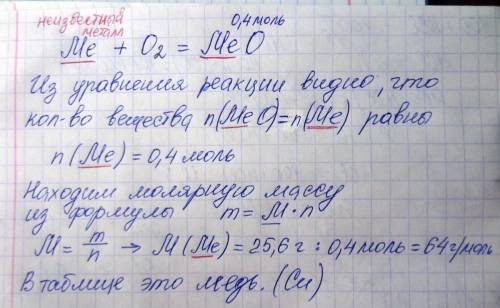 неизвестный
металл
0,4 моль
Ме + O₂ = МеО
Из уравнения реакции видно, что
кол-во вещества n(МеО)=n(Ме) равны
n(Ме) = 0,4 моль
Находим молярную массу
из формулы m = M · n
M = m/n → M(Ме) = 25,6 г : 0,4 моль = 64 г/моль
В таблице это медь. (Cu)